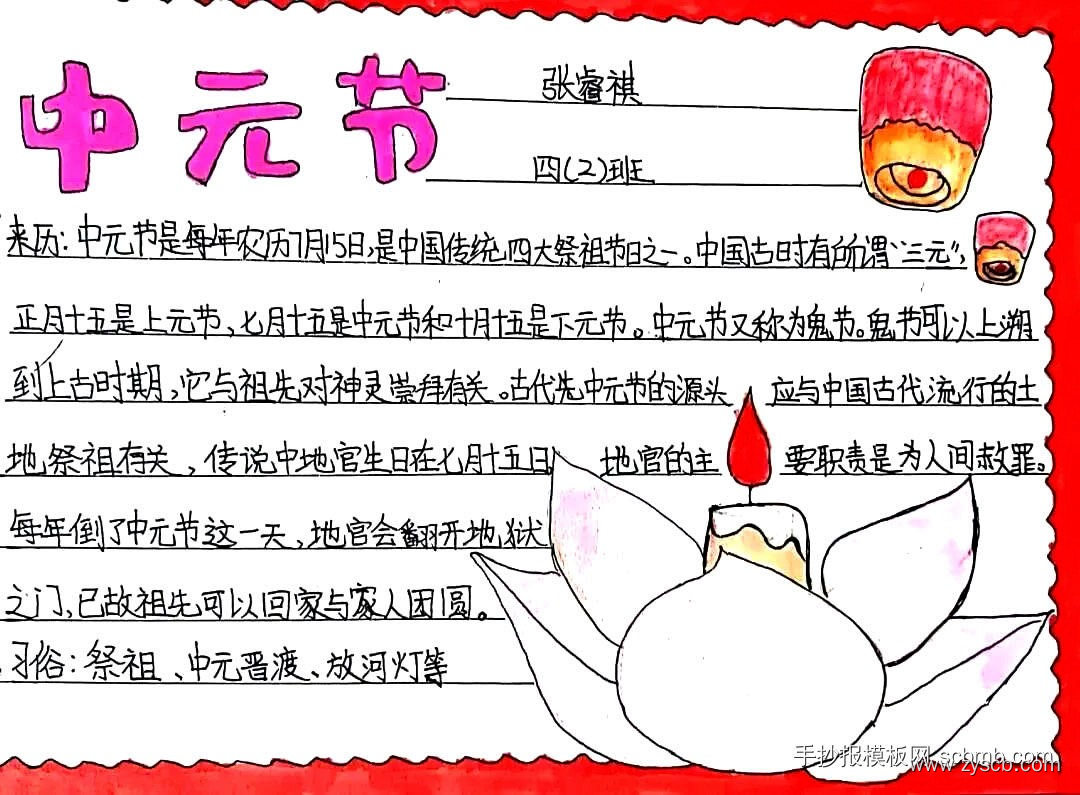 中元节
张睿祺
四(2)班
来历:中元节是每年农历7月15日,是中国传统四大祭祖节日之一。中国古时有所谓“三元”,
正月十五是上元节,七月十五是中元节和十月十五是下元节。中元节又称为鬼节。鬼节可以上溯
到上古时期,它与祖先对神灵崇拜有关。古代先中元节的源头 应与中国古代流行的土
地祭祖有关,传说中地官生日在七月十五日, 地官的主 要职责是为人间赦罪。
每年倒了中元节这一天,地官会翻开地狱
之门,已故祖先可以回家与家人团圆。
习俗:祭祖、中元晋渡、放河灯等
手抄报模板网 scbmb.com
www.zyscb.com